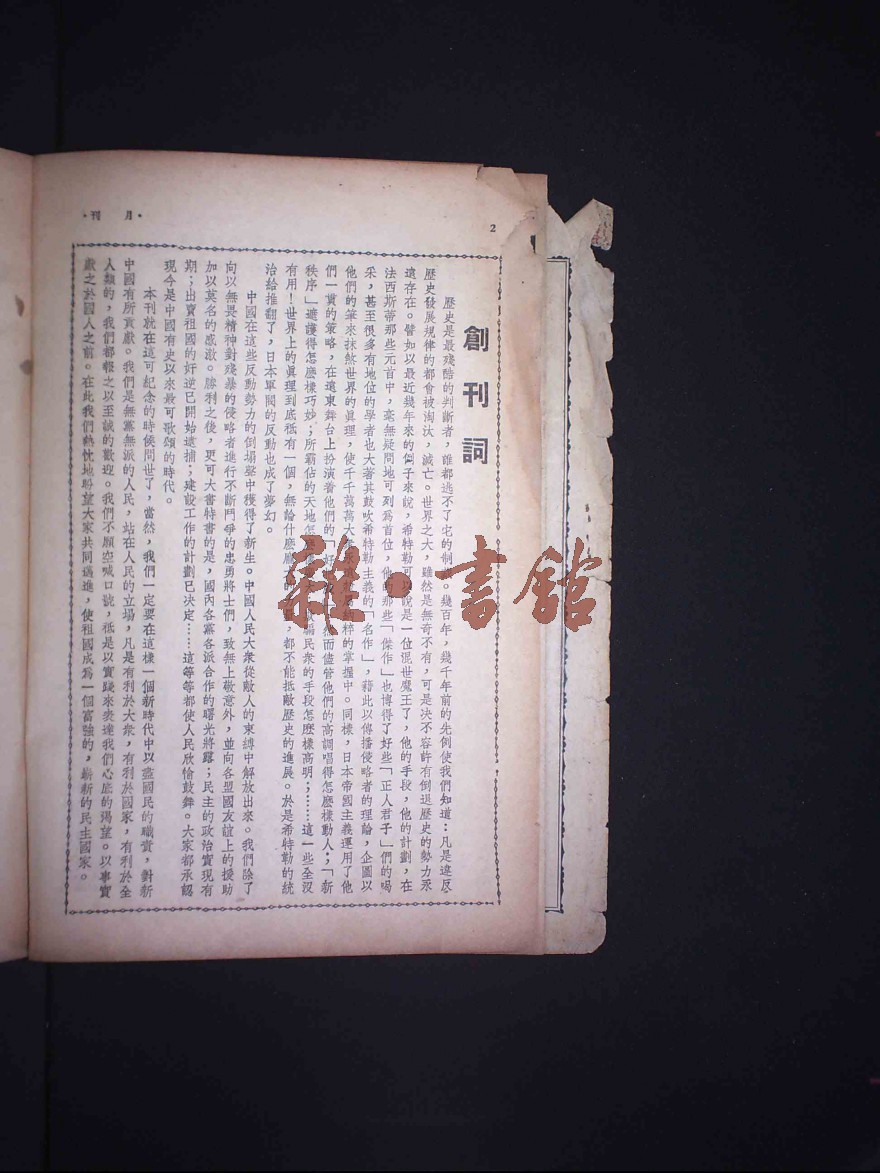 2
·月刊·
創刊詞
歷史是最殘酷的判斷者，誰都逃不了它的制裁。幾百年，幾千年前的先例使我們知道：凡是違反
歷史發展規律的都會被淘汰，滅亡。世界之大，雖然是無奇不有，可是決不容許有倒退歷史的勢力永
遠存在。譬如以最近幾年來的例子來說，希特勒可以說是一位混世魔王了，他的手段，他的計劃，在
法西斯蒂那些元首中，毫無疑問地可列為首位，他的那些「傑作」也博得了好些「正人君子」們的喝
采，甚至很多有地位的學者也大著其鼓吹希特勒主義的「名作」，藉此以傳播侵略者的理論，企圖以
他們的筆來抹煞世界的真理，使千千萬萬大粹的掌握中。同樣，日本帝國主義運用了他
們一貫的策略，在遠東舞台上扮演着他們的「好而儘管他們的高調唱得怎麼樣動人；「新
秩序」遮護得怎麼樣巧妙；所霸佔的天地怎麼騙民衆的手段怎麼樣高明；……這一些全沒
有用！世界上的真理到底祇有一個，無論什麼，都不能抵敵歷史的進展。於是希特勒的統
治給推翻了，日本軍閥的反動也成了夢幻。
中國在這些反動勢力的倒塌聲中獲得了新生。中國人民大衆從敵人的束縛中解放出來。我們除了
向以無畏精神對殘暴的侵略者進行不斷鬥爭的忠勇將士們，致無上敬意外，並向各盟國友誼上的援助
加以莫名的感激。勝利之後，更可大書特書的是，國內各黨各派合作的曙光將露；民主的政治實現有
期；出賣祖國的奸逆已開始逮捕；建設工作的計劃已決定……這等等都使人民欣愉鼓舞。大家都承認
現今是中國有史以來最可歌頌的時代。
本刊就在這可紀念的時候問世了，當然，我們一定要在這樣一個新時代中以盡國民的職責，對新
中國有所貢獻。我們是無黨無派的人民，站在人民的立場，凡是有利於大衆，有利於國家，有利於全
人類的，我們都報之以至誠的歡迎。我們不願空喊口號，祇是以實踐來表達我們心底的渴望。以事實
獻之於國人之前。在此我們熱忱地盼望大家共同邁進，使祖國成為一個富強的，嶄新的民主國家。
雜·書館